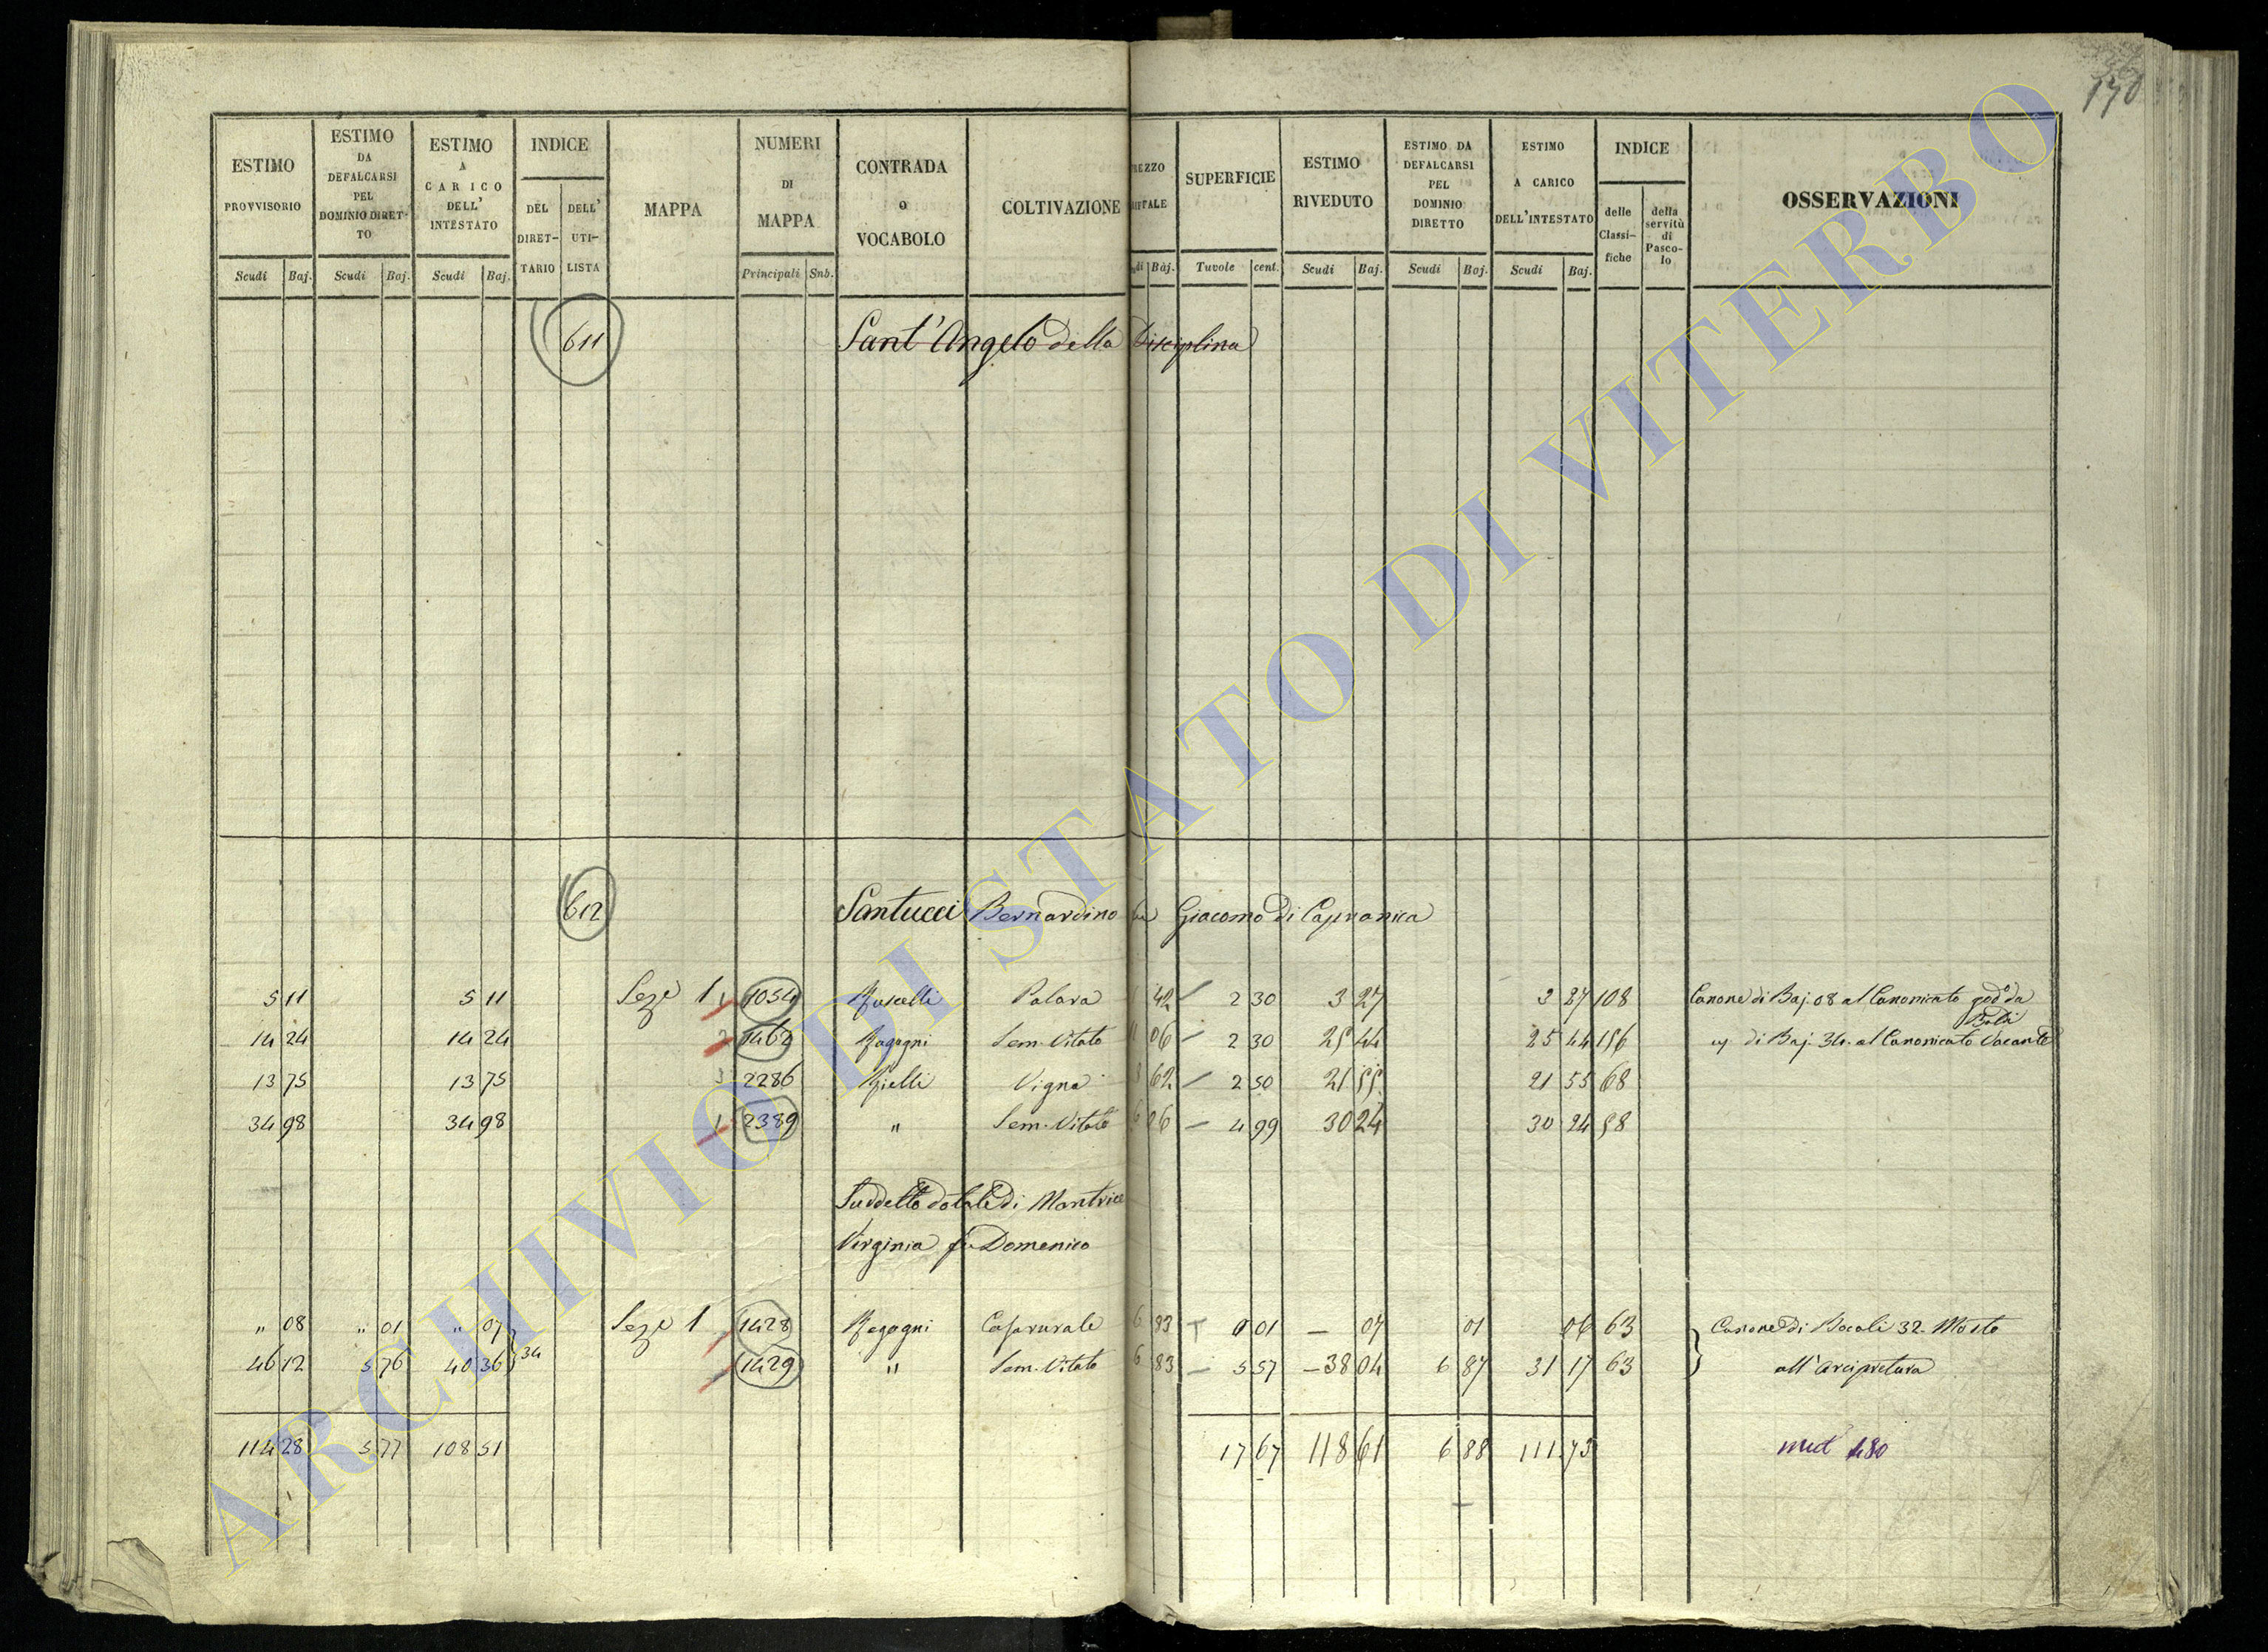 170
ESTIMO PROVVISORIO | ESTIMO DA DEFALCARSI PEL DOMINIO DIRETTO | ESTIMO A CARICO DELL' INTESTATO | INDICE DEL DIRETTARIO | DELL' UTILISTA | MAPPA | NUMERI DI MAPPA | CONTRADA O VOCABOLO | COLTIVAZIONE | REZZO IFFALE | SUPERFICIE | ESTIMO RIVEDUTO | ESTIMO DA DEFALCARSI PEL DOMINIO DIRETTO | ESTIMO A CARICO DELL'INTESTATO | INDICE delle Classifiche | della servitù di Pascolo | OSSERVAZIONI
Scudi | Baj. | Scudi | Baj. | Scudi | Baj. | Principali | Snb. | di | Baj. | Tavole | cent. | Scudi | Baj. | Scudi | Boj. | Scudi | Baj.
611 Sant' Angelo della Disciplina
612 Santucci Bernardino fu Giacomo di Capranica
5 11 | 5 11 | Seze 1 | 1 | 1054 | Ruscelli | Palara | 42 | 2 30 | 3 27 | 3 27 | 108 | Canone di Baj. 08 al Canonicato god.o da
14 24 | 14 24 | 2 | 1462 | Ragogni | Sem. Vitato | 11 06 | 2 30 | 25 44 | 25 44 | 156 | di Baj. 34. al Canonicato Vacante
13 75 | 13 75 | 3 | 2286 | Gielli | Vigna | 8 62 | 2 50 | 21 55 | 21 55 | 68
34 98 | 34 98 | 2389 | " | Sem. Vitato | 6 06 | 4 99 | 30 24 | 30 24 | 58
Suddetto dotale di Mantrice
Virginia fu Domenico
" 08 | " 01 | " 07 | Seze 1 | 1428 | Ragogni | Casa rurale | 6 83 | 0 01 | — 07 | 01 | 06 | 63 | Canone di Bocali 32. Mosto
46 12 | 5 76 | 40 36 | 34 | 1429 | " | Sem. Vitato | 6 83 | 5 57 | — 38 04 | 6 87 | 31 17 | 63 | all' Arcipretura
114 28 | 5 77 | 108 51 | 17 67 | 118 61 | 6 88 | 111 73 | 480
ARCHIVIO DI STATO DI VITERBO